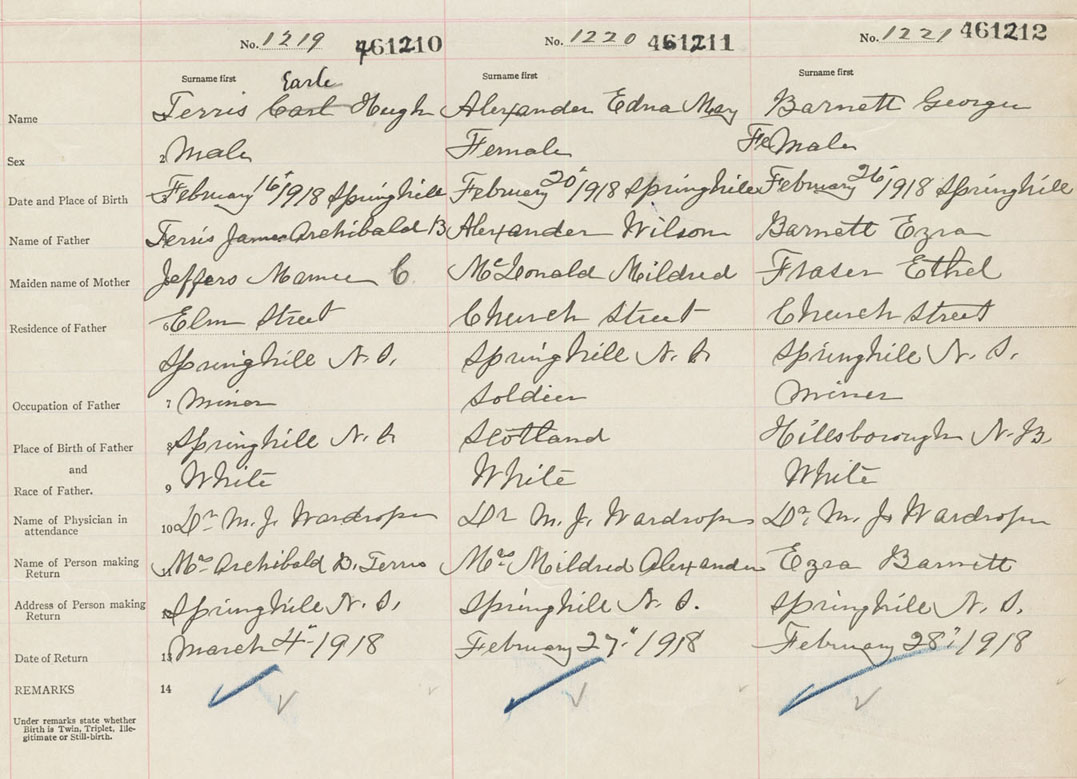 No. 1219 461210 No. 1220 461211 No. 1221 461212
Surname first Surname first Surname first
Earle
Name Terris Carl Hugh Alexander Edna May Barnett George
Sex 2 Male Female FeMale
Date and Place of Birth February 16" 1918 Springhill February 20" 1918 Springhill February 26" 1918 Springhill
Name of Father Terris James Archibald B Alexander Wilson Barnett Ezra
Maiden name of Mother Jeffers Mamie C. McDonald Mildred Fraser Ethel
Residence of Father 6 Elm Street Church Street Church Street
Springhill N. S. Springhill N. S Springhill N. S.
Occupation of Father 7 Miner Soldier Miner
Place of Birth of Father 8 Springhill N. S Scotland Hillsborough N. B
and
Race of Father. 9 White White White
Name of Physician in attendance 10 Dr M. J. Wardrope Dr M. J. Wardrope Dr. M. J. Wardrope
Name of Person making Return 11 Mrs Archibald B. Terris Mrs Mildred Alexander Ezra Barnett
Address of Person making Return 12 Springhill N. S. Springhill N. S. Springhill N. S.
Date of Return 13 March 4" 1918 February 27" 1918 February 28" 1918
REMARKS 14
Under remarks state whether
Birth is Twin, Triplet, Ille-
gitimate or Still-birth.